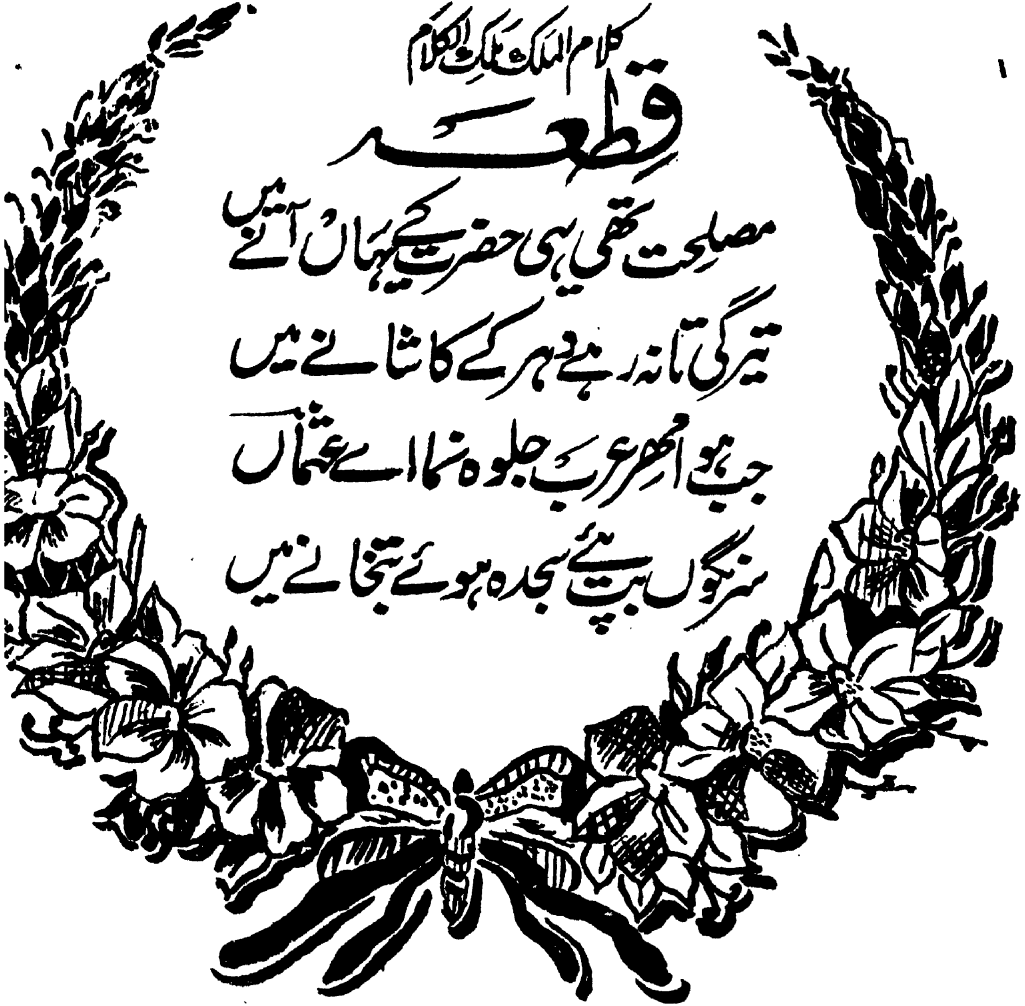 کلام الملک ملک الکلام
قطعہ
مصلحت تھی یہی حضرت کے یہاں آنے میں
تیرگی تا نہ رہے دہر کے کاشانے میں
جب ہوا مہر عرب جلوہ نما اے عثماں
سرنگوں بت پئے سجدہ ہوئے بتخانے میں